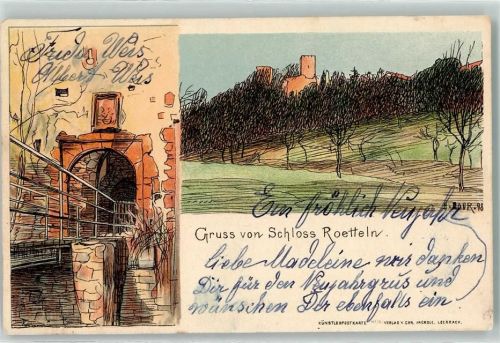 Frida Weis
Albert Weis
DAUR-98
Gruss von Schloss Roetteln.
Ein fröhlich Neujahr
Liebe Madeleine wir danken
Dir für den Neujahrgrus und
wünschen Dir ebenfalls ein
KÜNSTLERPOSTKARTE VERLAG V. CHR. LOERRACH.